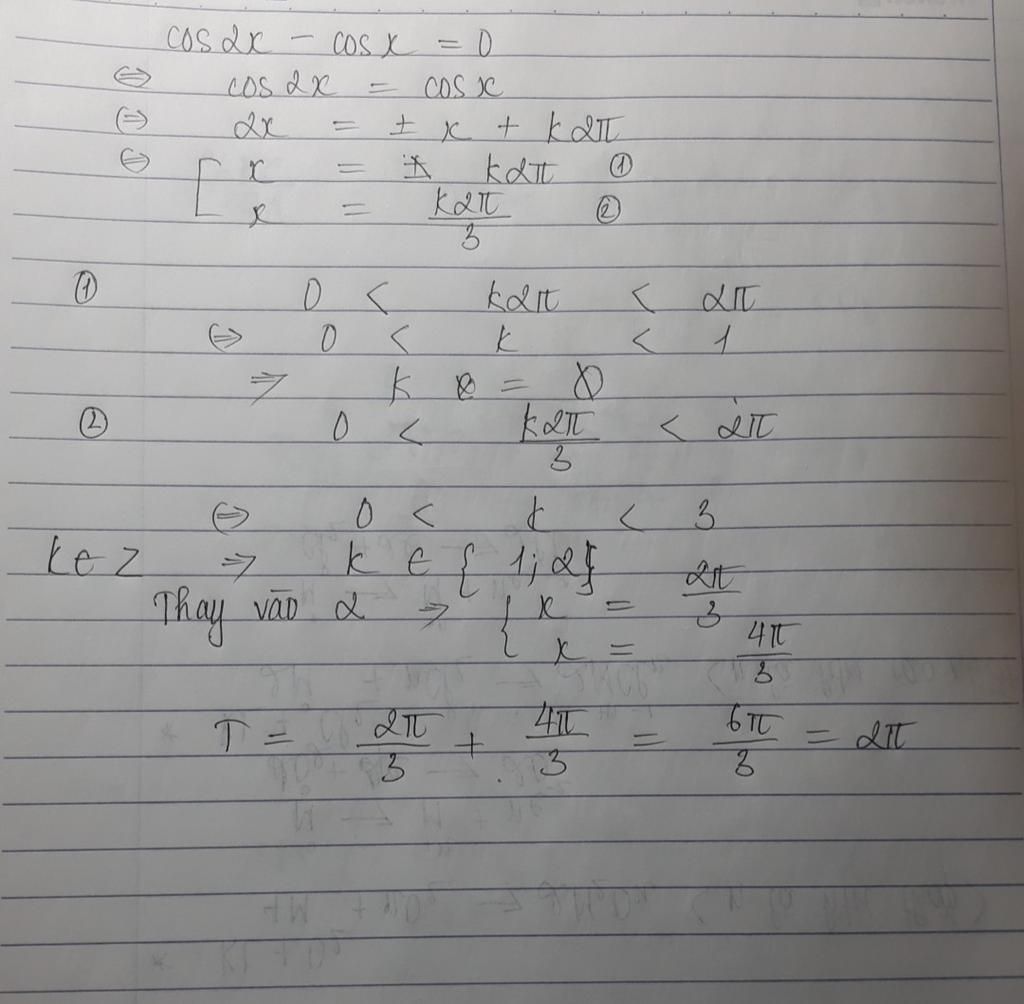 cos2x - cosx = 0
⇔ cos2x = cosx
⇔ 2x = ± x + k2π
⇔ [ x = k2π ①
x = k2π/3 ②
① 0 < k2π < 2π
⇔ 0 < k < 1
⇒ k =
② 0 < k2π/3 < 2π
⇔ 0 < k < 3
k ∈ Z ⇒ k ∈ { 1; 2}
Thay vào 2 ⇒ { x = 2π/3
x = 4π/3
T = 2π/3 + 4π/3 = 6π/3 = 2π